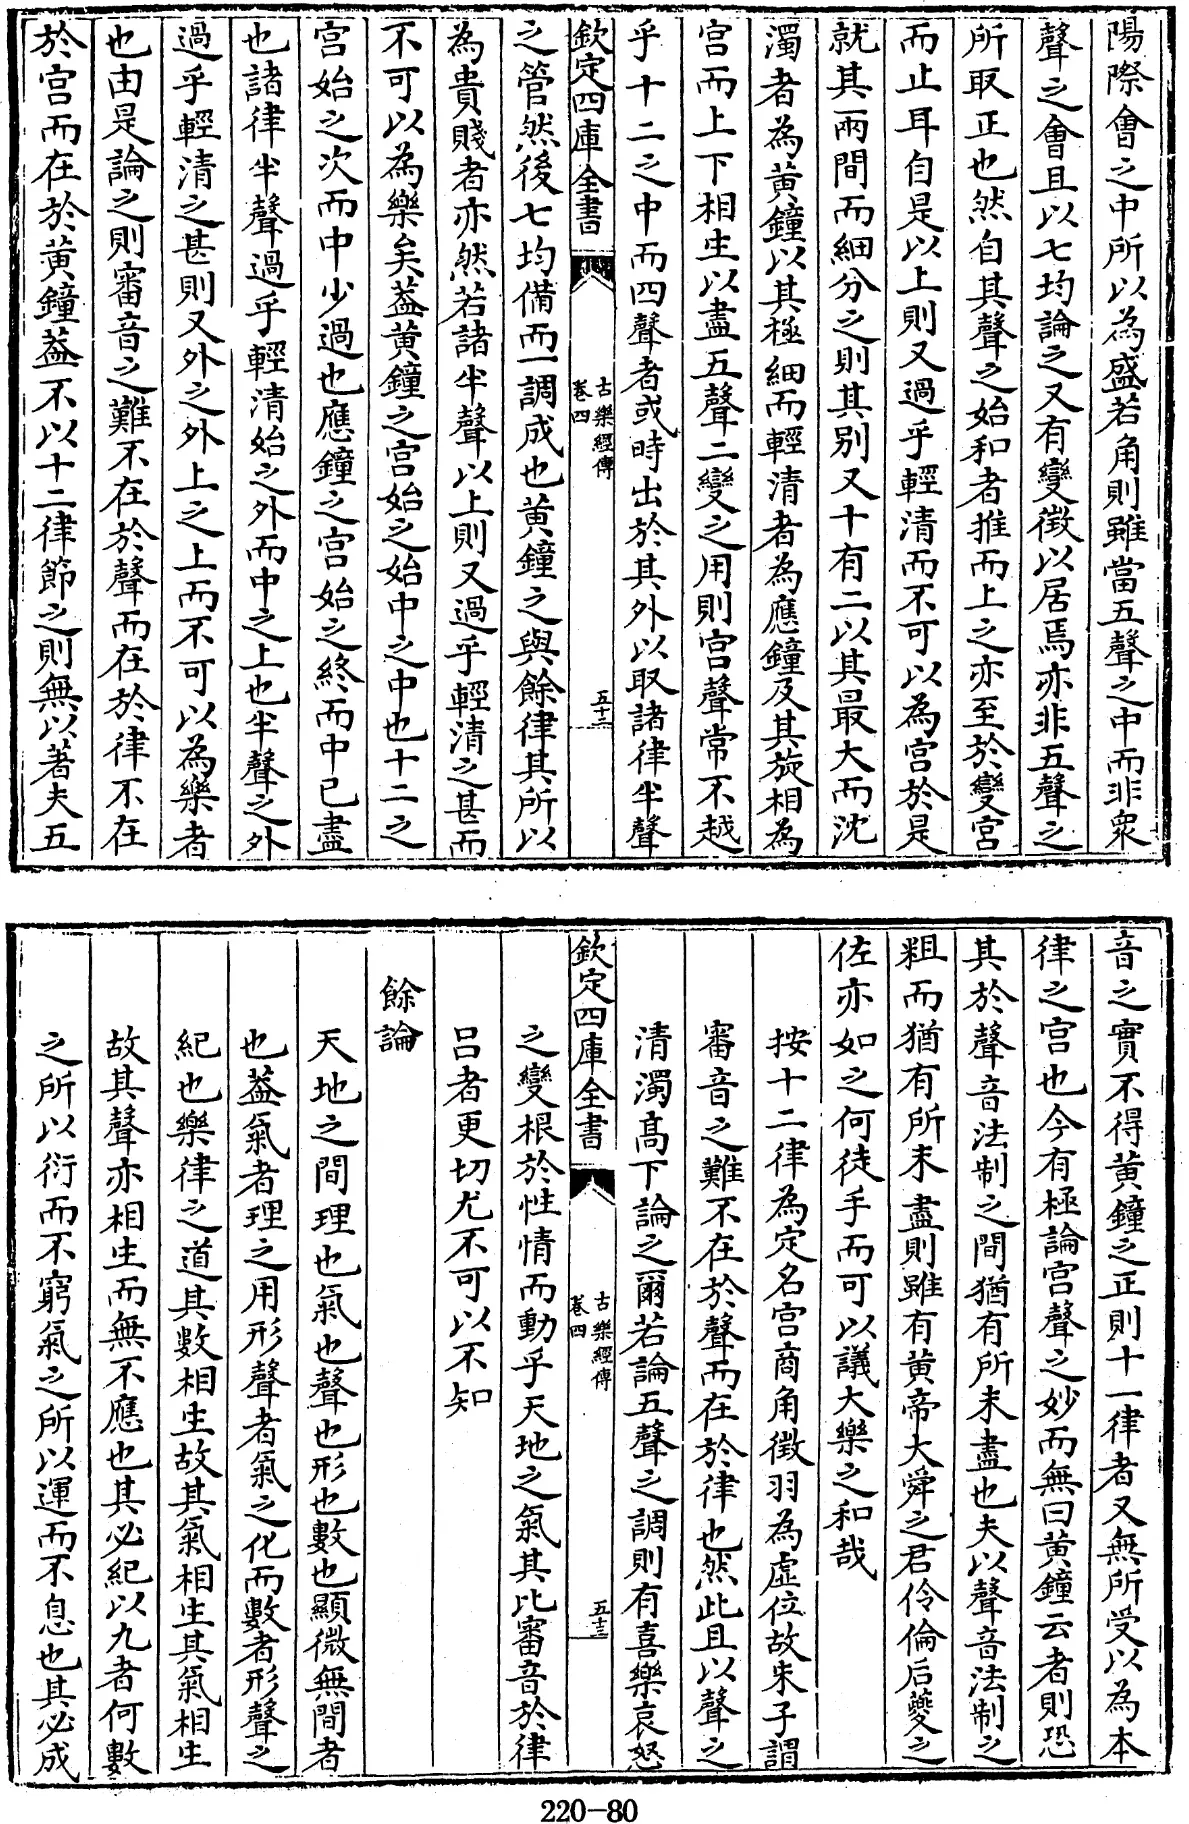 陽際會之中所以為盛若角則雖當五聲之中而非衆
聲之會且以七均論之又有變徴以居焉亦非五聲之
所取正也然自其聲之始和者推而上之亦至於變宫
而止耳自是以上則又過乎輕清而不可以為宫於是
就其兩間而細分之則其别又十有二以其最大而沈
濁者為黄鐘以其極細而輕清者為應鐘及其旋相為
宫而上下相生以盡五聲二變之用則宫聲常不越
乎十二之中而四聲者或時出於其外以取諸律半聲
欽定四庫全書
古樂經傳
卷四
五十三
之管然後七均備而一調成也黄鐘之與餘律其所以
為貴賤者亦然若諸半聲以上則又過乎輕清之甚而
不可以為樂矣葢黄鐘之宫始之始中之中也十二之
宫始之次而中少過也應鐘之宫始之終而中已盡
也諸律半聲過乎輕清始之外而中之上也半聲之外
過乎輕清之甚則又外之外上之上而不可以為樂者
也由是論之則審音之難不在於聲而在於律不在
於宫而在於黄鐘葢不以十二律節之則無以著夫五
音之實不得黄鐘之正則十一律者又無所受以為本
律之宫也今有極論宫聲之妙而無曰黄鐘云者則恐
其於聲音法制之間猶有所未盡也夫以聲音法制之
粗而猶有所未盡則雖有黄帝大舜之君伶倫后夔之
佐亦如之何徒手而可以議大樂之和哉
按十二律為定名宫商角徴羽為虚位故朱子謂
審音之難不在於聲而在於律也然此且以聲之
清濁髙下論之爾若論五聲之調則有喜樂哀怒
欽定四庫全書
古樂經傳
卷四
五十三
之變根於性情而動乎天地之氣其比審音於律
吕者更切尤不可以不知
餘論
天地之間理也氣也聲也形也數也顯微無間者
也葢氣者理之用形聲者氣之化而數者形聲之
紀也樂律之道其數相生故其氣相生其氣相生
故其聲亦相生而無不應也其必紀以九者何數
之所以衍而不窮氣之所以運而不息也其必成
220-80